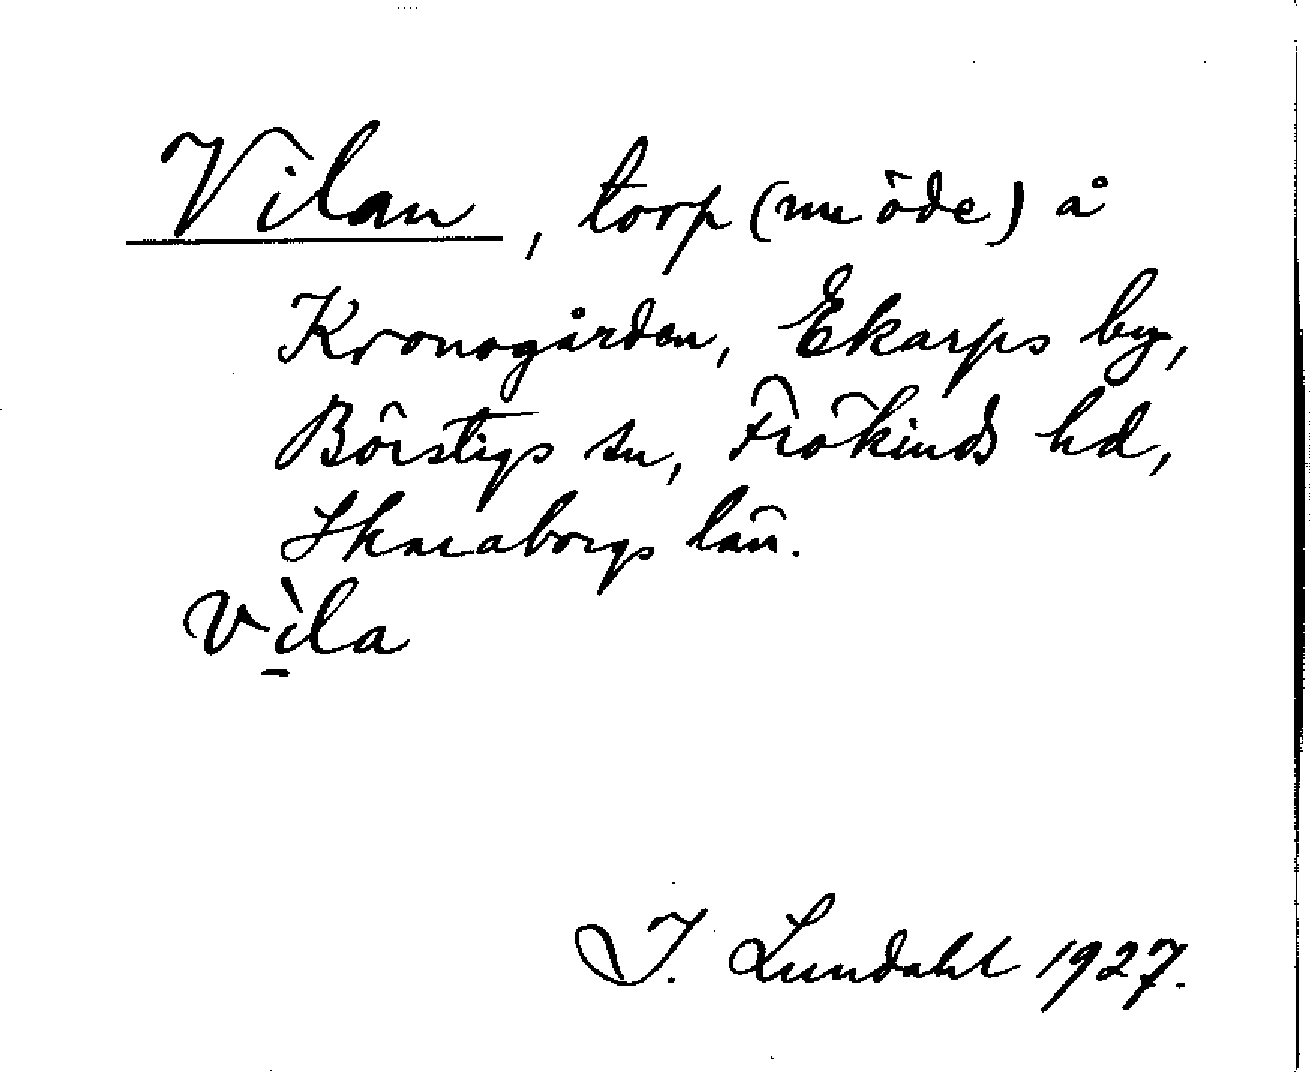 Vilan, torp (nu öde) å
Kronogården, Ekarps by,
Börstigs sn, Frökinds hd,
Skaraborgs län.
Vi̠̇̀la
I. Lundahl 1927.